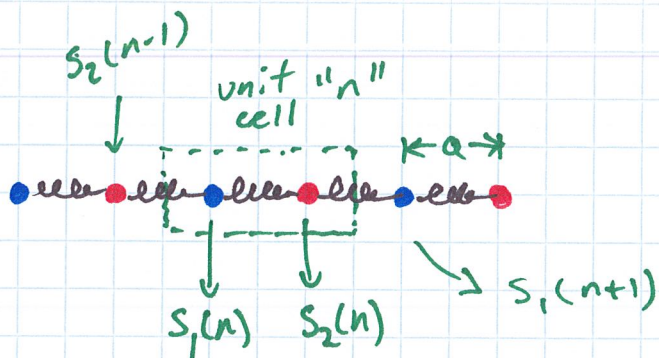 S₂(n-1)
unit "n"
cell
a
S₁(n) S₂(n)
S₁(n+1)